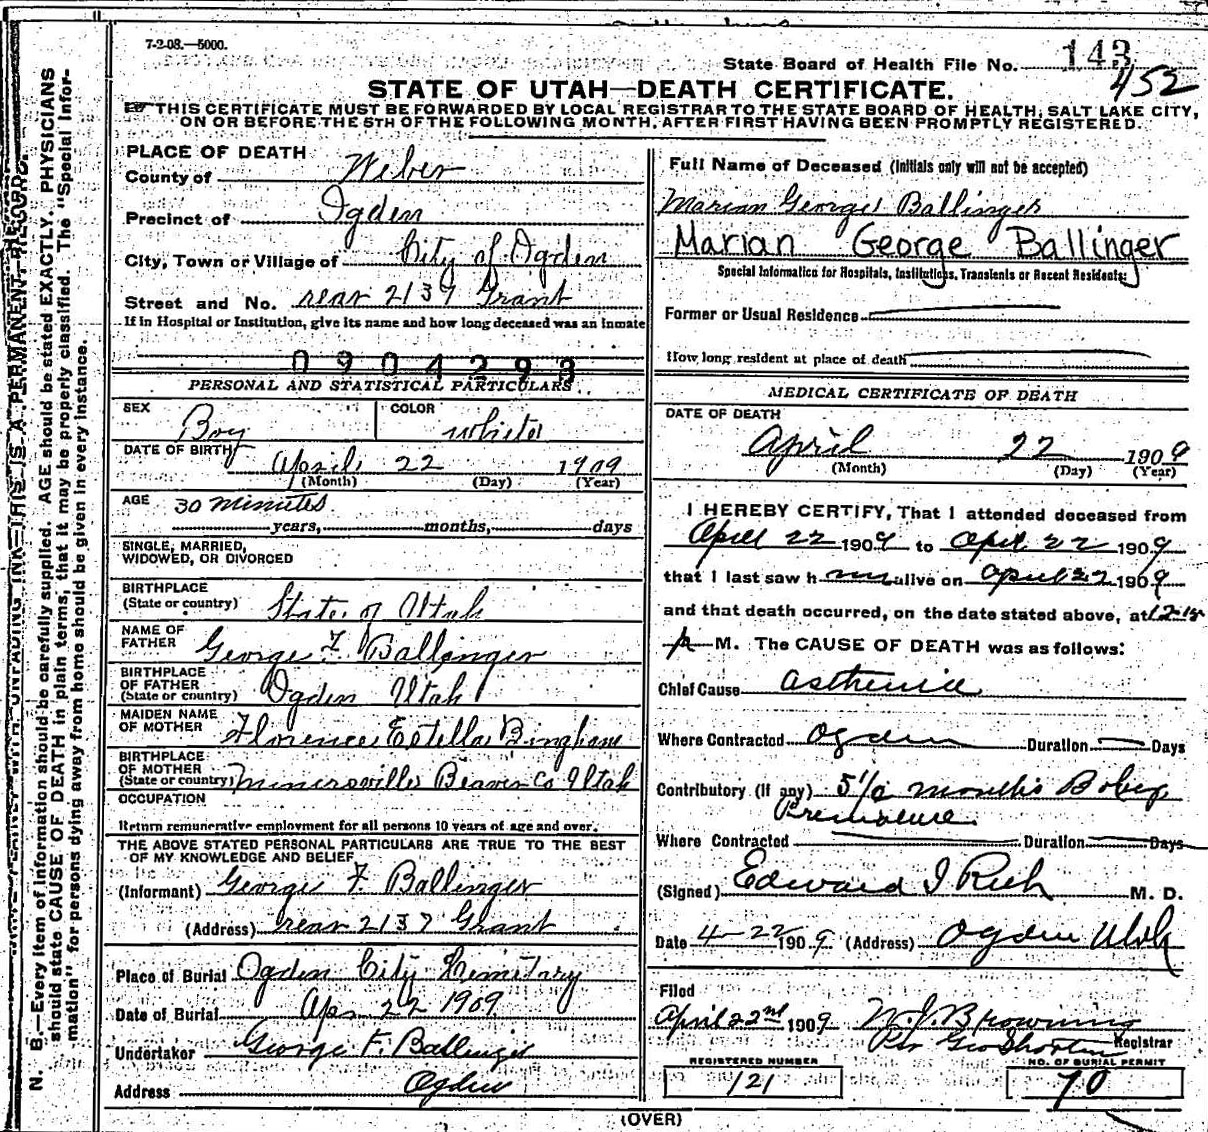 7-2-08.—5000.
State Board of Health File No. 143
452
STATE OF UTAH—DEATH CERTIFICATE.
THIS CERTIFICATE MUST BE FORWARDED BY LOCAL REGISTRAR TO THE STATE BOARD OF HEALTH, SALT LAKE CITY,
ON OR BEFORE THE 5TH OF THE FOLLOWING MONTH, AFTER FIRST HAVING BEEN PROMPTLY REGISTERED.
PLACE OF DEATH
County of Weber
Precinct of Ogden
City, Town or Village of City of Ogden
Street and No. rear 2137 Grant
If in Hospital or Institution, give its name and how long deceased was an inmate
0904293
PERSONAL AND STATISTICAL PARTICULARS
SEX Boy COLOR White
DATE OF BIRTH April 22 1909
(Month) (Day) (Year)
AGE 30 minutes
years, months, days
SINGLE, MARRIED,
WIDOWED, OR DIVORCED
BIRTHPLACE
(State or country) State of Utah
NAME OF
FATHER George F. Ballinger
BIRTHPLACE
OF FATHER
(State or country) Ogden Utah
MAIDEN NAME
OF MOTHER Florence Estella Bingham
BIRTHPLACE
OF MOTHER
(State or country) Minersville Beaver Co Utah
OCCUPATION
Return remunerative employment for all persons 10 years of age and over.
THE ABOVE STATED PERSONAL PARTICULARS ARE TRUE TO THE BEST
OF MY KNOWLEDGE AND BELIEF
(Informant) George F Ballinger
(Address) rear 2137 Grant
Place of Burial Ogden City Cemitary
Date of Burial Apr 22 1909
Undertaker George F. Ballinger
Address Ogden
Full Name of Deceased (initials only will not be accepted)
Marian George Ballinger
Marian George Ballinger
Special Information for Hospitals, Institutions, Transients or Recent Residents:
Former or Usual Residence
How long resident at place of death
MEDICAL CERTIFICATE OF DEATH
DATE OF DEATH
April 22 1909
(Month) (Day) (Year)
I HEREBY CERTIFY, That I attended deceased from
April 22 1909 to April 22 1909
that I last saw h im alive on April 22 1909
and that death occurred, on the date stated above, at 12-15
p M. The CAUSE OF DEATH was as follows:
Chief Cause asthenia
Where Contracted Ogden Duration Days
Contributory (if any) 5 1/2 months Baby
Premature
Where Contracted Duration Days
(Signed) Edward I Rich M. D.
Date 4-22 1909 (Address) Ogden Utah
Filed
April 22nd 1909 W J. Browning
Per Geo Shorten Registrar
REGISTERED NUMBER NO. OF BURIAL PERMIT
121 70
(OVER)
N. B.—Every item of information should be carefully supplied. AGE should be stated EXACTLY. PHYSICIANS
should state CAUSE OF DEATH in plain terms, that it may be properly classified. The "Special Infor-
mation" for persons dying away from home should be given in every instance.
UNFADING INK—THIS IS A PERMANENT RECORD.